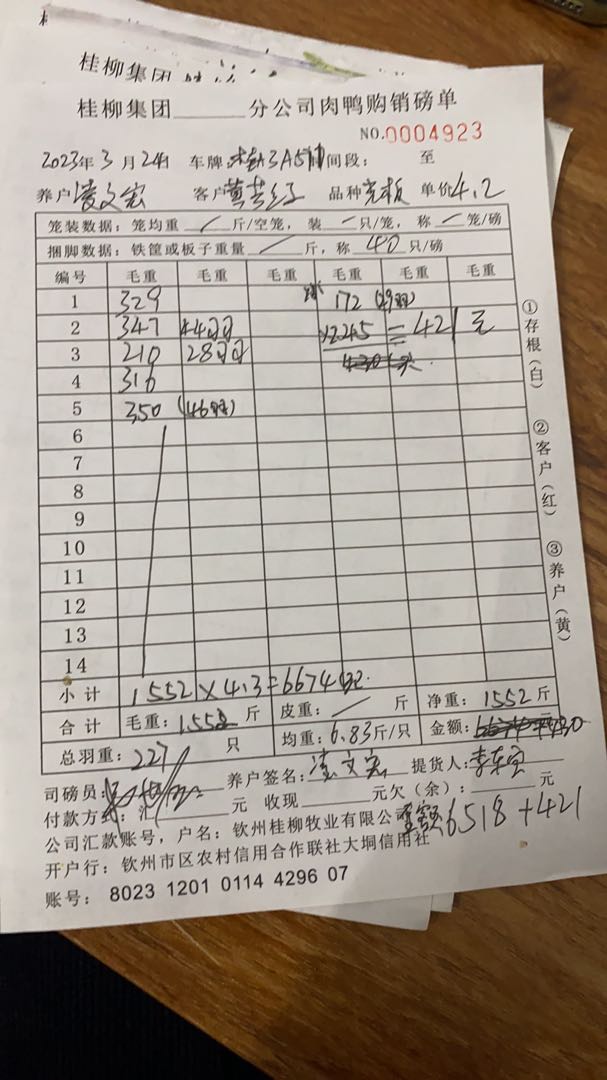 桂柳集团
桂柳集团______分公司肉鸭购销磅单
NO.0004923
2023年3月24日 车牌: 3A 间段: 至
养户凌文宏 客户黄 品种 单价4.2
笼装数据: 笼均重 / 斤/空笼, 装 - 只/笼, 称 / 笼/磅
捆脚数据: 铁筐或板子重量 / 斤, 称 40 只/磅
编号 毛重 毛重 毛重 毛重 毛重 毛重
1 329 172 (29羽)
2 347 44只 ×2.45 = 421元
3 210 28只
4 316
5 350 (46羽)
6
7
8
9
10
11
12
13
14
小计 1552×4.3=6674
合计 毛重: 1552斤 皮重: / 斤 净重: 1552斤
总羽重: 227 只 均重: 6.83斤/只 金额: 元
司磅员: 养户签名: 凌文宏 提货人: 李
付款方式: 汇 元 收现 元欠(余): 元
公司汇款账号, 户名: 钦州桂柳牧业有限公 金额6518+421
开户行: 钦州市区农村信用合作联社大垌信用社
账号: 8023 1201 0114 4296 07
①存根(白)
②客户(红)
③养户(黄)